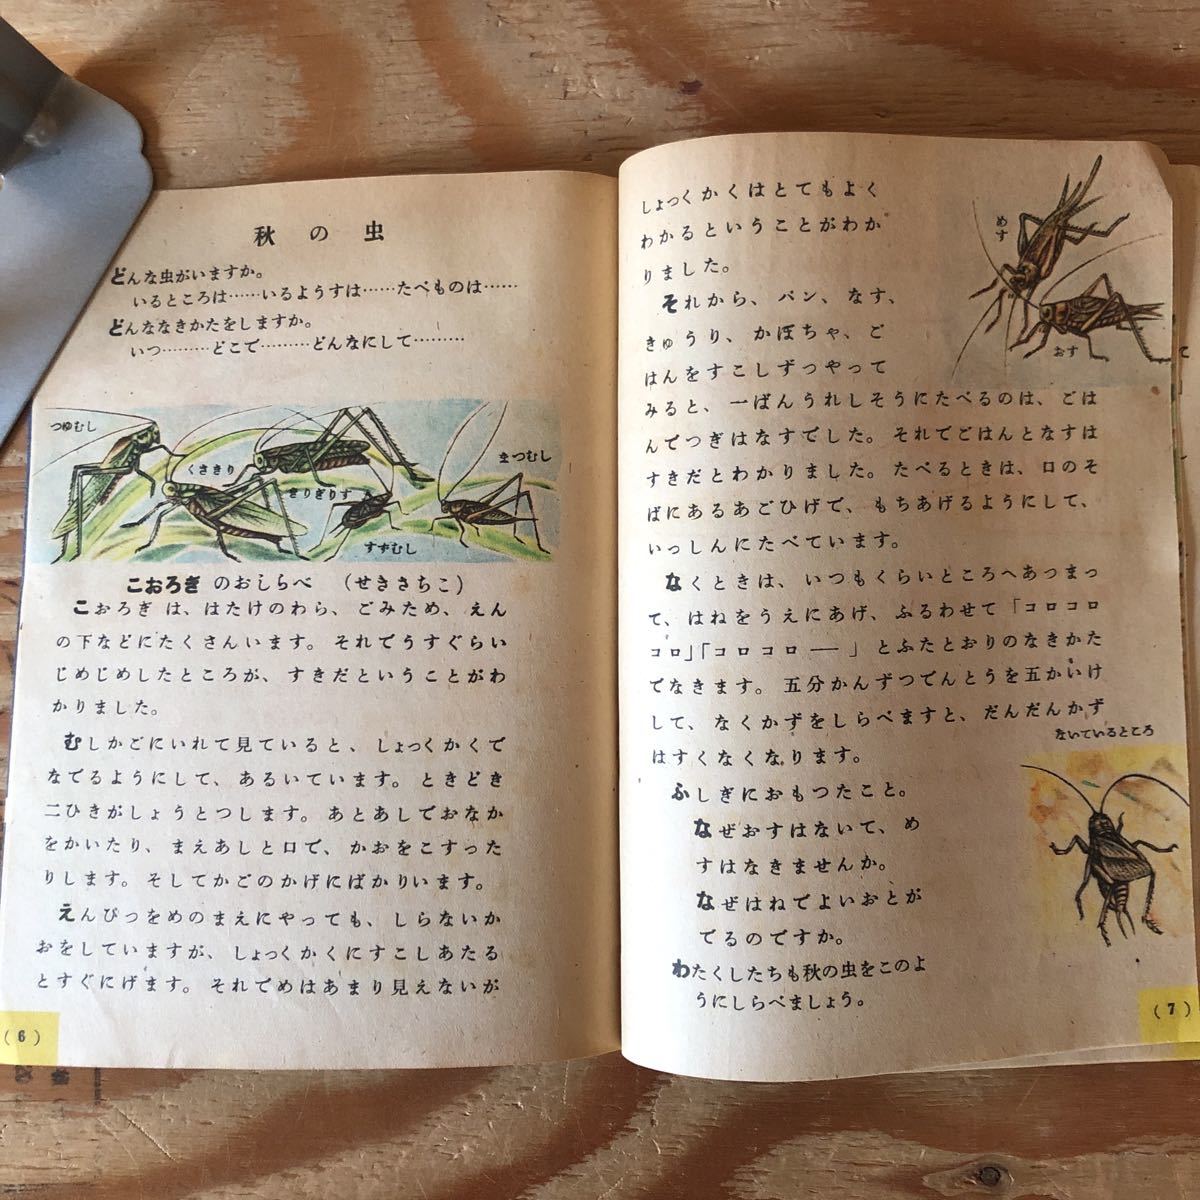 秋の虫
どんな虫がいますか。
いるところは……いるようすは……たべものは……
どんななきかたをしますか。
いつ………どこで………どんなにして………
つゆむし
くさきり
きりぎりす
まつむし
すずむし
こおろぎ のおしらべ (せきさちこ)
こおろぎ は、はたけのわら、ごみため、えん
の下などにたくさんいます。それでうすぐらい
じめじめしたところが、すきだということがわ
かりました。
むしかごにいれて見ていると、しょっくかくで
なでるようにして、あるいています。ときどき
二ひきがしょうとつします。あとあしでおなか
をかいたり、まえあしと口で、かおをこすった
りします。そしてかごのかげにばかりいます。
えんぴつをめのまえにやっても、しらないか
おをしていますが、しょっくかくにすこしあたる
とすぐにげます。それでめはあまり見えないが
(6)
しょっくかくはとてもよく
わかるということがわか
りました。
それから、パン、なす、
きゅうり、かぼちゃ、ご
はんをすこしずつやって
みると、一ばんうれしそうにたべるのは、ごは
んでつぎはなすでした。それでごはんとなすは
すきだとわかりました。たべるときは、口のそ
ばにあるあごひげで、もちあげるようにして、
いっしんにたべています。
なくときは、いつもくらいところへあつまっ
て、はねをうえにあげ、ふるわせて「コロコロ
コロ」「コロコロ――」とふたとおりのなきかた
でなきます。五分かんずつでんとうを五かいけ
して、なくかずをしらべますと、だんだんかず
はすくなくなります。
ふしぎにおもつたこと。
なぜおすはないて、め
すはなきませんか。
なぜはねでよいおとが
でるのですか。
わたくしたちも秋の虫をこのよ
うにしらべましょう。
めす
おす
ないているところ
(7)